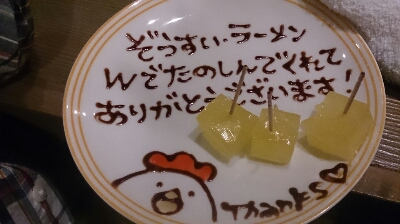 ぞっすい・ラーメン
Wでたのしんでくれて
ありがとうございます!
Thanks♡